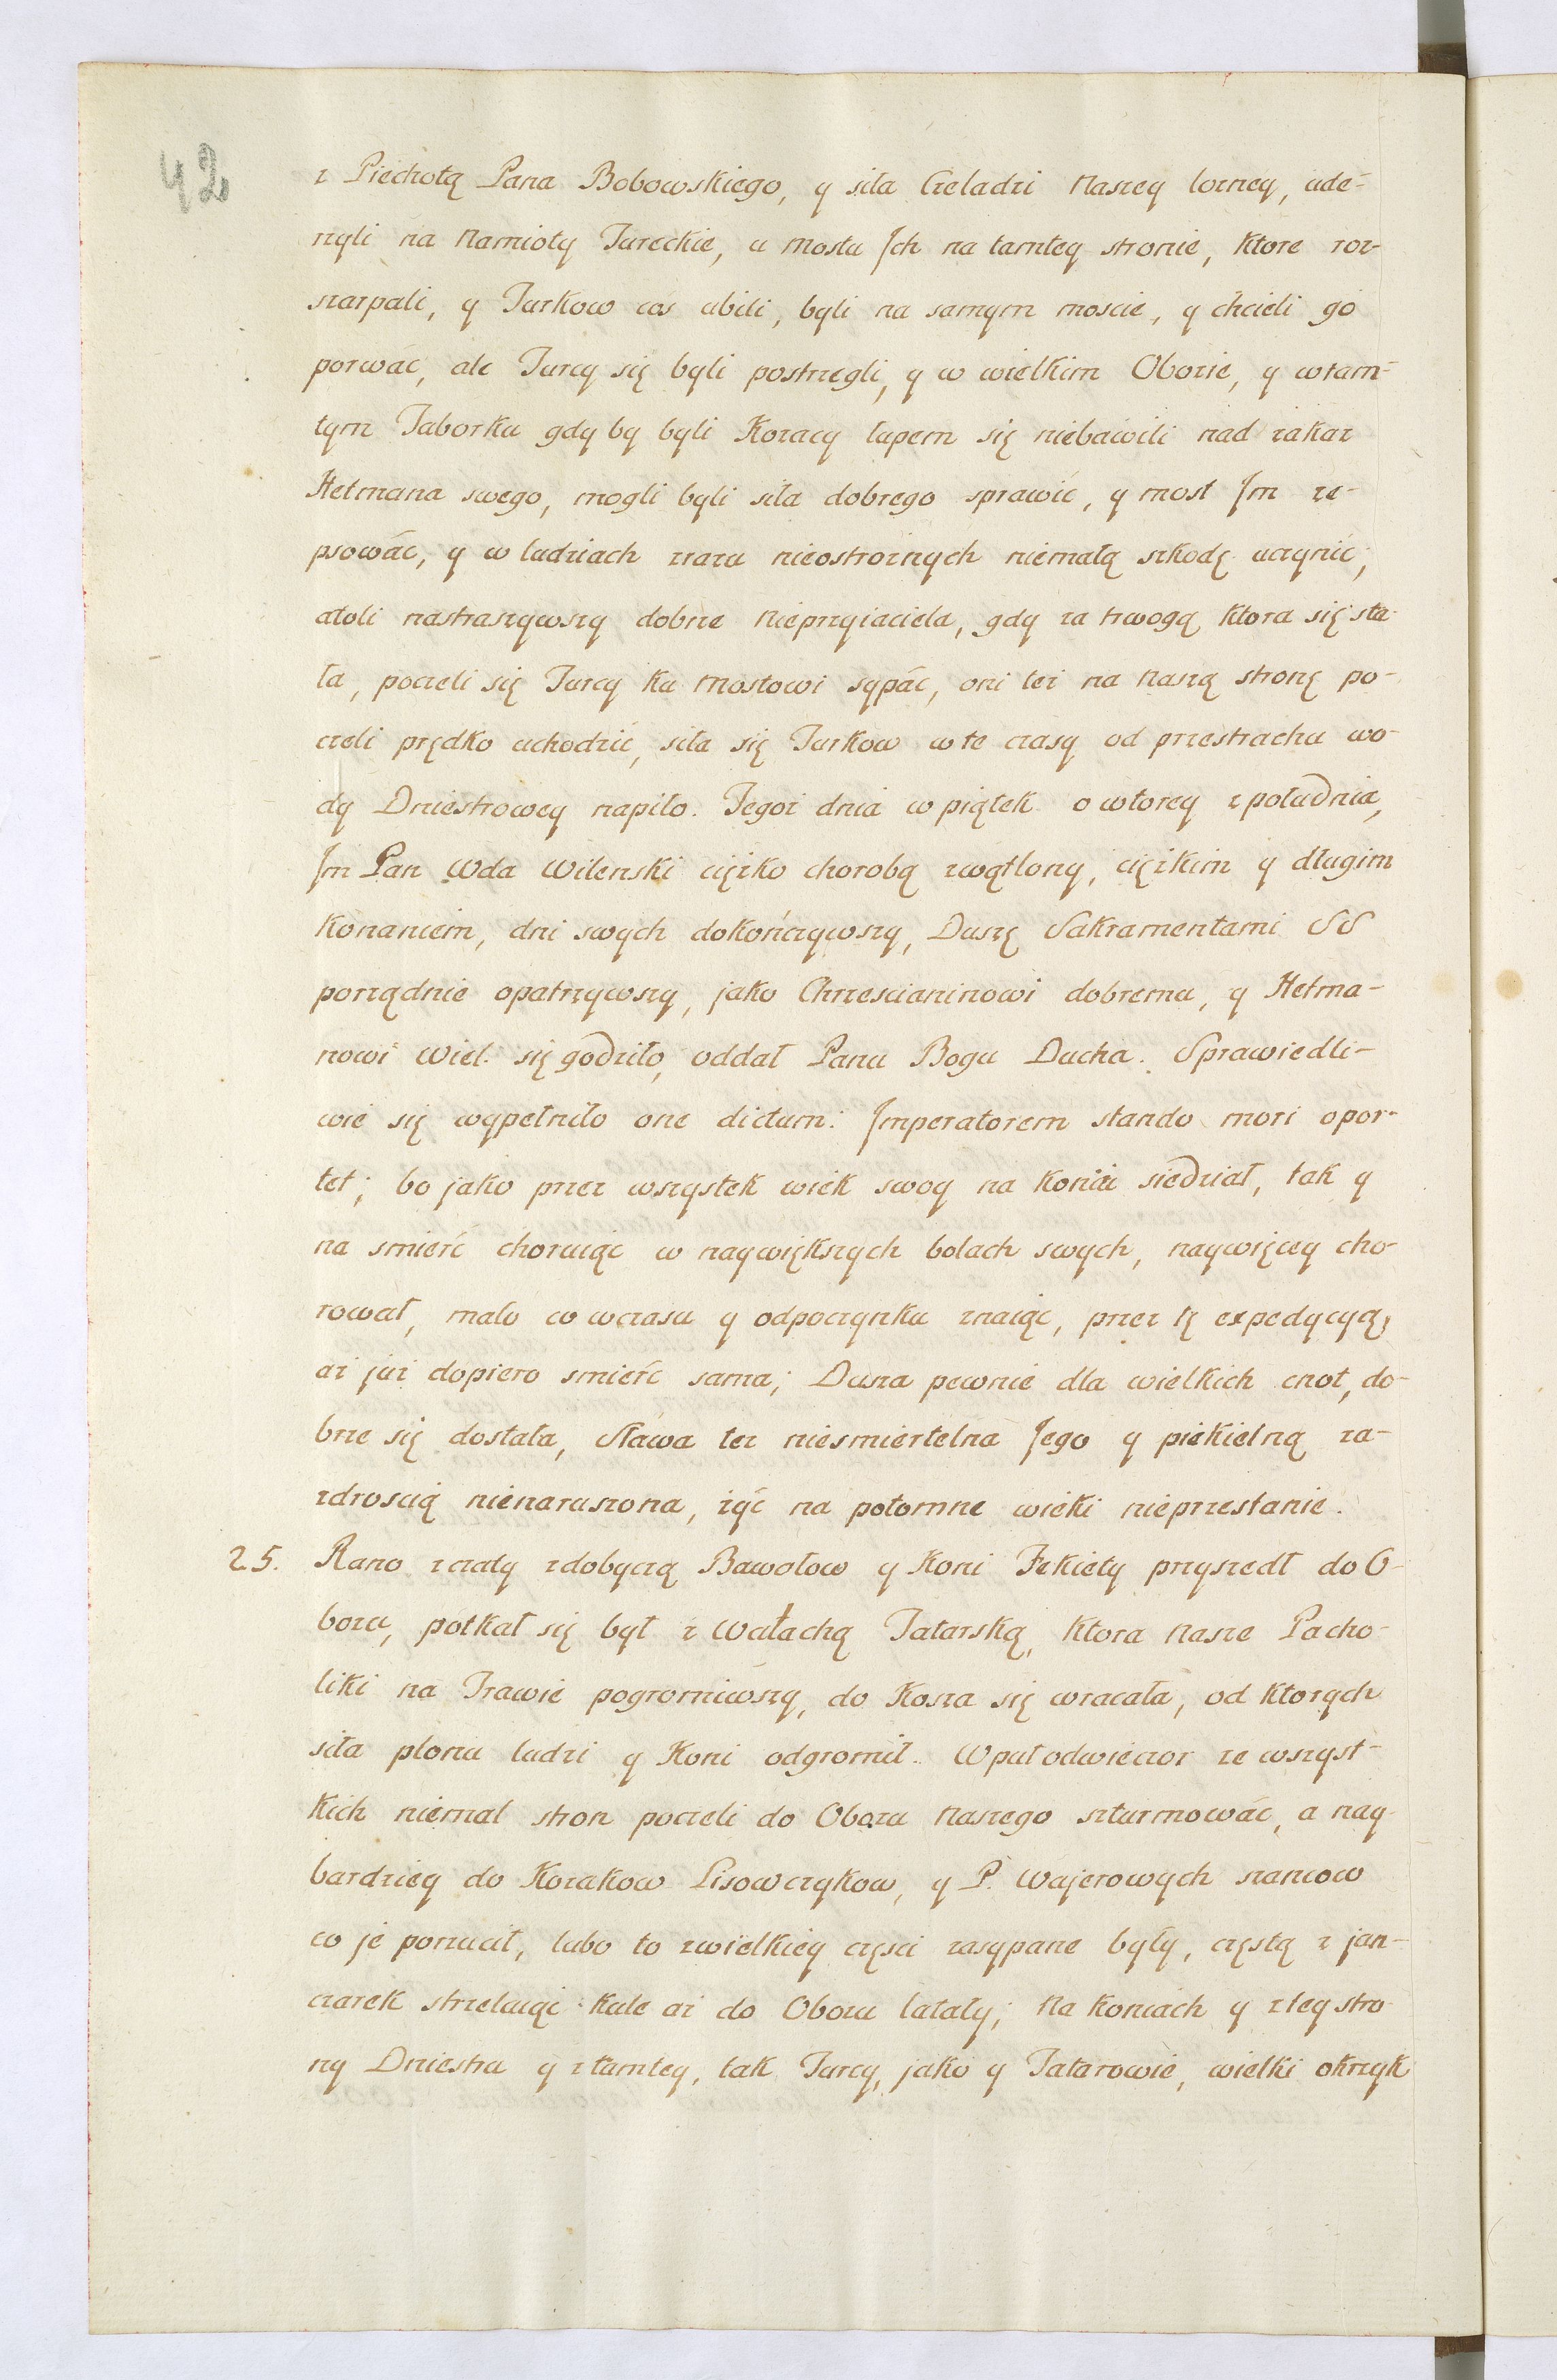 42
z Piechotą Pana Bobowskiego, y siła Czeladzi Naszey lozney, ude-
rzyli na Namioty Tureckie, u Mostu Ich na tamtey stronie, ktore roz-
szarpali, y Turkow cos ubili, byli na samym moscie, y chcieli go
porwać, ale Turcy się byli postrzegli, y w wielkim Obozie, y wtam-
tym Taborku gdy by byli Kozacy łupem się niebawili nad zakaz
Hetmana swego, mogli byli siła dobrego sprawić, y most Im ze-
psować, y w ludziach zrazu nieostroznych niemałą szkodę uczynić,
atoli nastraszywszy dobrze Nieprzyiaciela, gdy za trwogą ktora się sta-
ła, poczeli się Turcy ku Mostowi sypać, oni tez na Naszą stronę po-
czeli prędko uchodzić, siła się Turkow w te czasy od przestrachu wo-
dy Dniestrowey napiło. Tegoz dnia w piątek o wtorey zpołudnia,
Im Pan Wda Wilenski cięzko chorobą zwątlony, cięzkim y długim
konaniem, dni swych dokończywszy, Duszę Sakramentami SS
porządnie opatrzywszy, jako Chrzescianinowi dobremu, y Hetma-
nowi Wiel. się godziło, oddał Panu Bogu Ducha. Sprawiedli-
wie się wypełniło one dictum: Imperatorem stando mori opor-
tet; bo jako przez wszystek wiek swoy na koniu siedział, tak y
na smierć choruiąc w naywiększych bolach swych, naywięcey cho-
rował, mało co wczasu y odpoczynku znaiąc, przez tę expedycyą,
az juz dopiero smierć sama; Dusza pewnie dla wielkich cnot, do-
brze się dostała, Sława tez niesmiertelna Jego y piekielną za-
zdroscią nienaruszona, zyć na potomne wieki nieprzestanie.
25. Rano zczaty zdobyczą Bawołow y Koni Fekiety przyszedł do O-
bozu, potkał się był z Wałachą Tatarską, ktora Nasze Pacho-
liki na Trawie pogromiwszy, do Kosza się wracała, od ktorych
siła plonu ludzi y Koni odgromił. Wpuł odwieczor ze wszyst-
kich niemal stron poczeli do Obozu Naszego szturmować, a nay-
bardziey do Kozakow Lisowczykow, y P. Wajerowych szancow
co je porzucił, lubo to zwielkiey części zasypane były, częstą z jan-
czarek strzelaiąc kule az do Obozu latały; Na koniach y ztey stro-
ny Dniestra y ztamtey, tak Turcy, jako y Tatarowie, wielki okrzyk